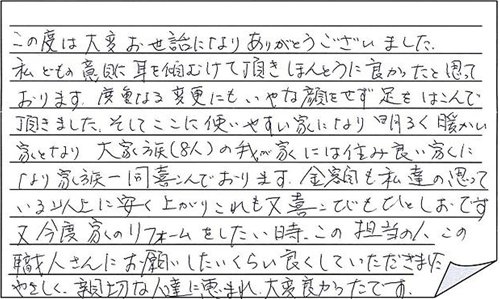 この度は大変お世話になりありがとうございました。
私どもの意見に耳を傾むけて頂きほんとうに良かったと思って
おります。度重なる変更にもいやな顔をせず足をはこんで
頂きました。そしてここに使いやすい家になり明るく暖かい
家となり 大家族(8人)の我が家には住み良い家に
なり家族一同喜こんでおります。金額も私達の思って
いる以上に安く上がりこれも又喜こびもひとしおです
又今度家のリフォームをしたい時、この担当の人この
職人さんにお願いしたいくらい良くしていただきました
やさしく、親切な人達に恵まれ、大変良かったです。